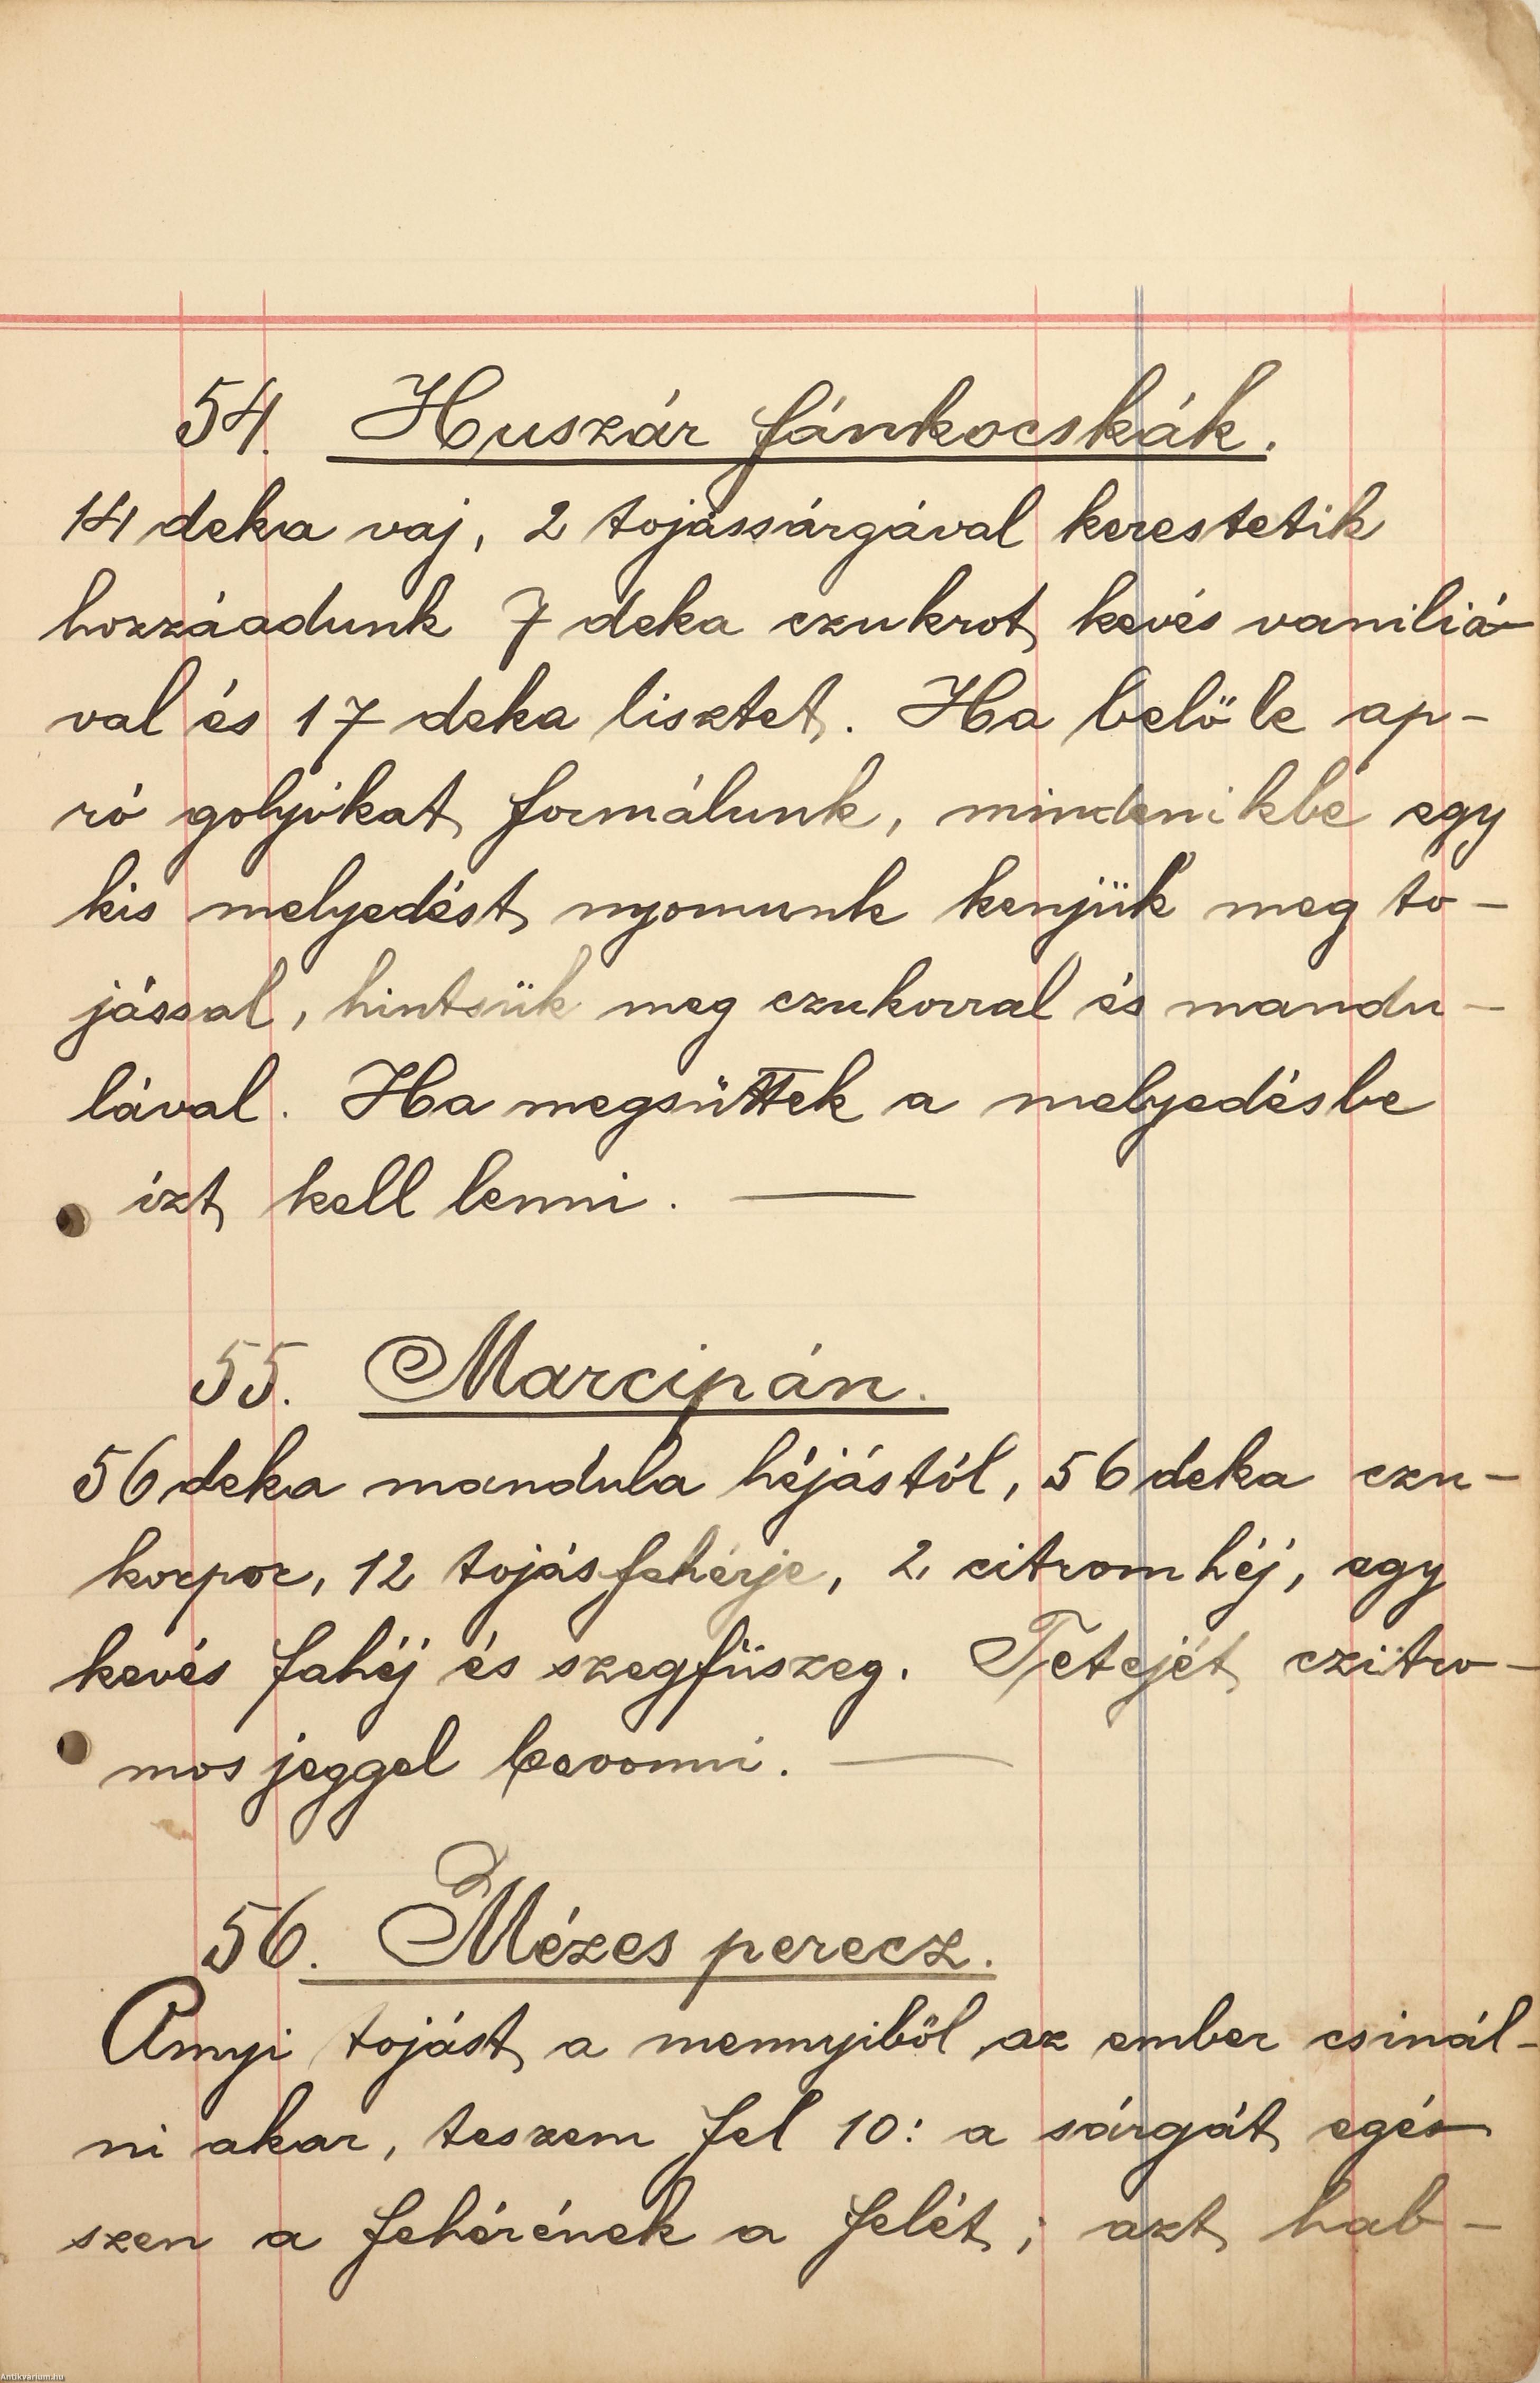 54. Huszár fánkocskák.
14 deka vaj, 2 tojássárgával kerestetik
hozzáadunk 7 deka czukrot kevés vaniliá-
val és 17 deka lisztet. Ha belöle ap-
ró golyókat formálunk, mindenikbe egy
kis melyedést nyomunk kenjük meg to-
jással, hintsük meg czukorral és mandu-
lával. Ha megsüttek a melyedésbe
izt kell tenni.
55. Marcipán.
56 deka mandula héjástól, 56 deka czu-
korpor, 12 tojásfehérje, 2 citromhéj, egy
kevés fahéj és szegfüszeg. Tetejét czitro-
mos jeggel bevonni.
56. Mézes perecz.
Annyi tojást a mennyiböl az ember csinál-
ni akar, teszem fel 10: a sárgát egés
szen a fehérének a felét; azt hab-
Antikvarium.hu